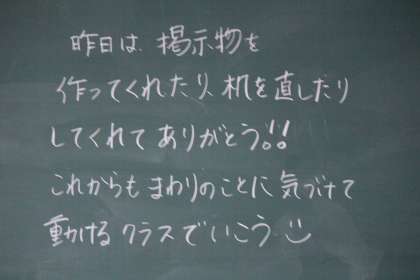 昨日は、掲示物を
作ってくれたり、机を直したり
してくれてありがとう!!
これからもまわりのことに気づけて
動けるクラスでいこう